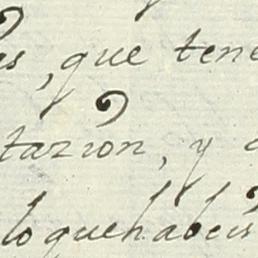 s, que tene
tazion, y
loquehabeis